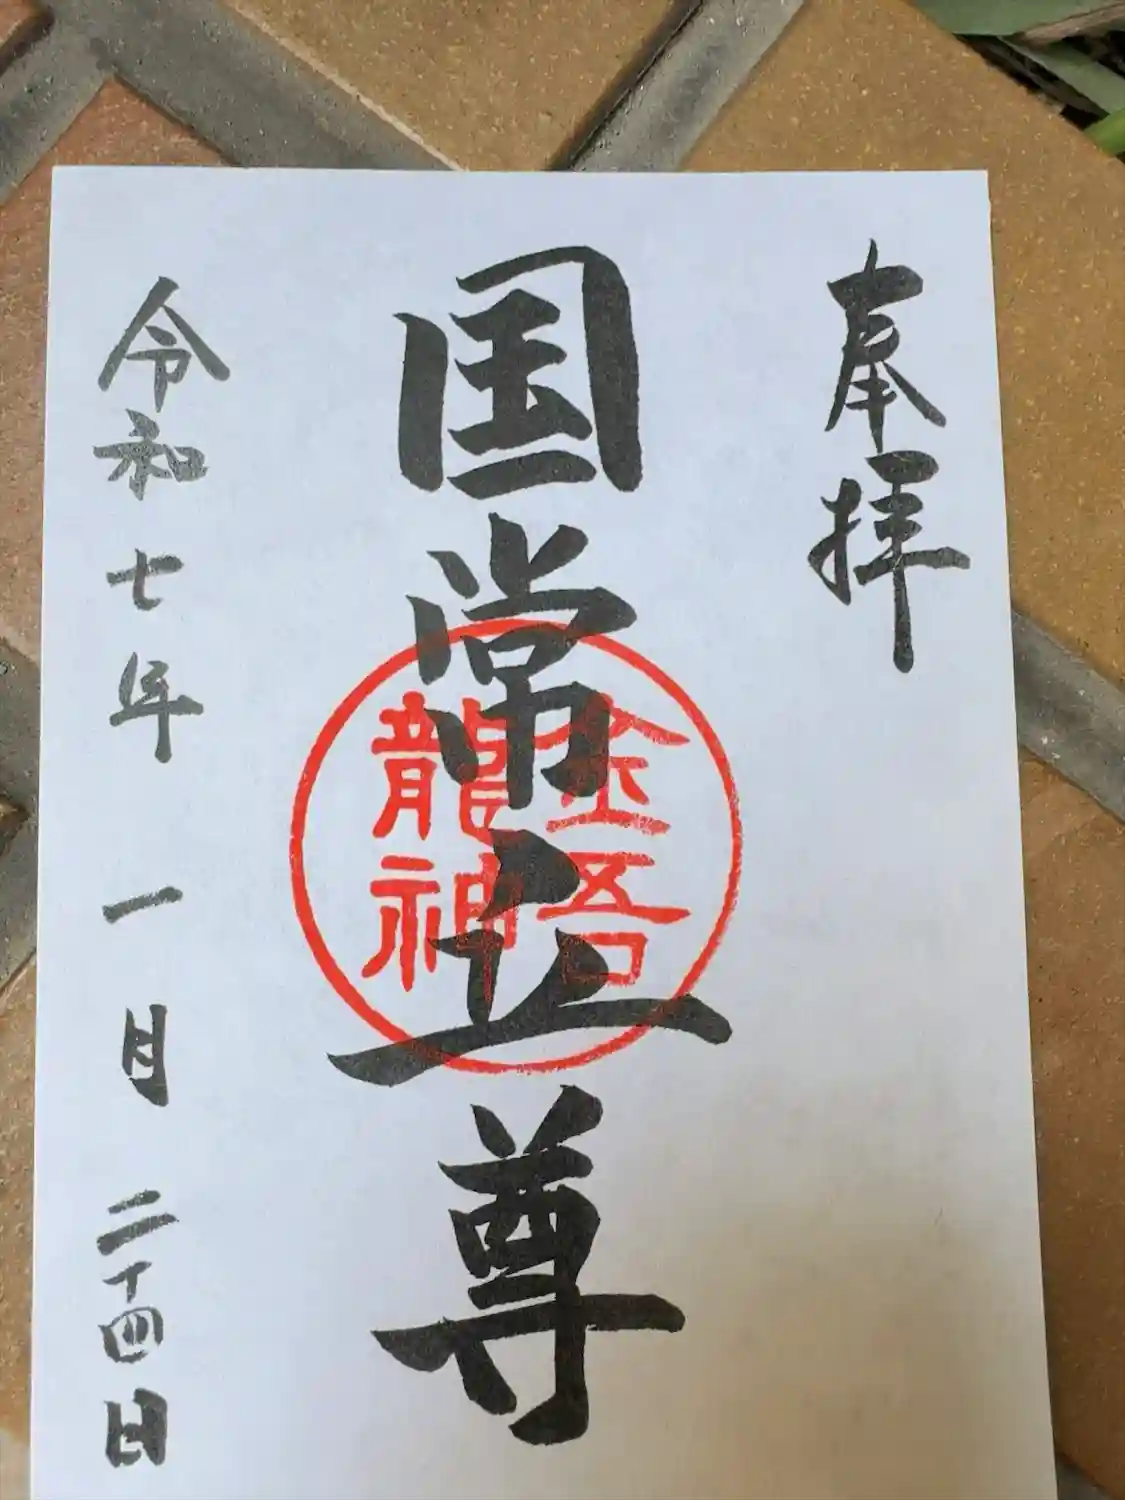 奉拝
国常立尊
金吾
龍神
令和七年一月二十四日